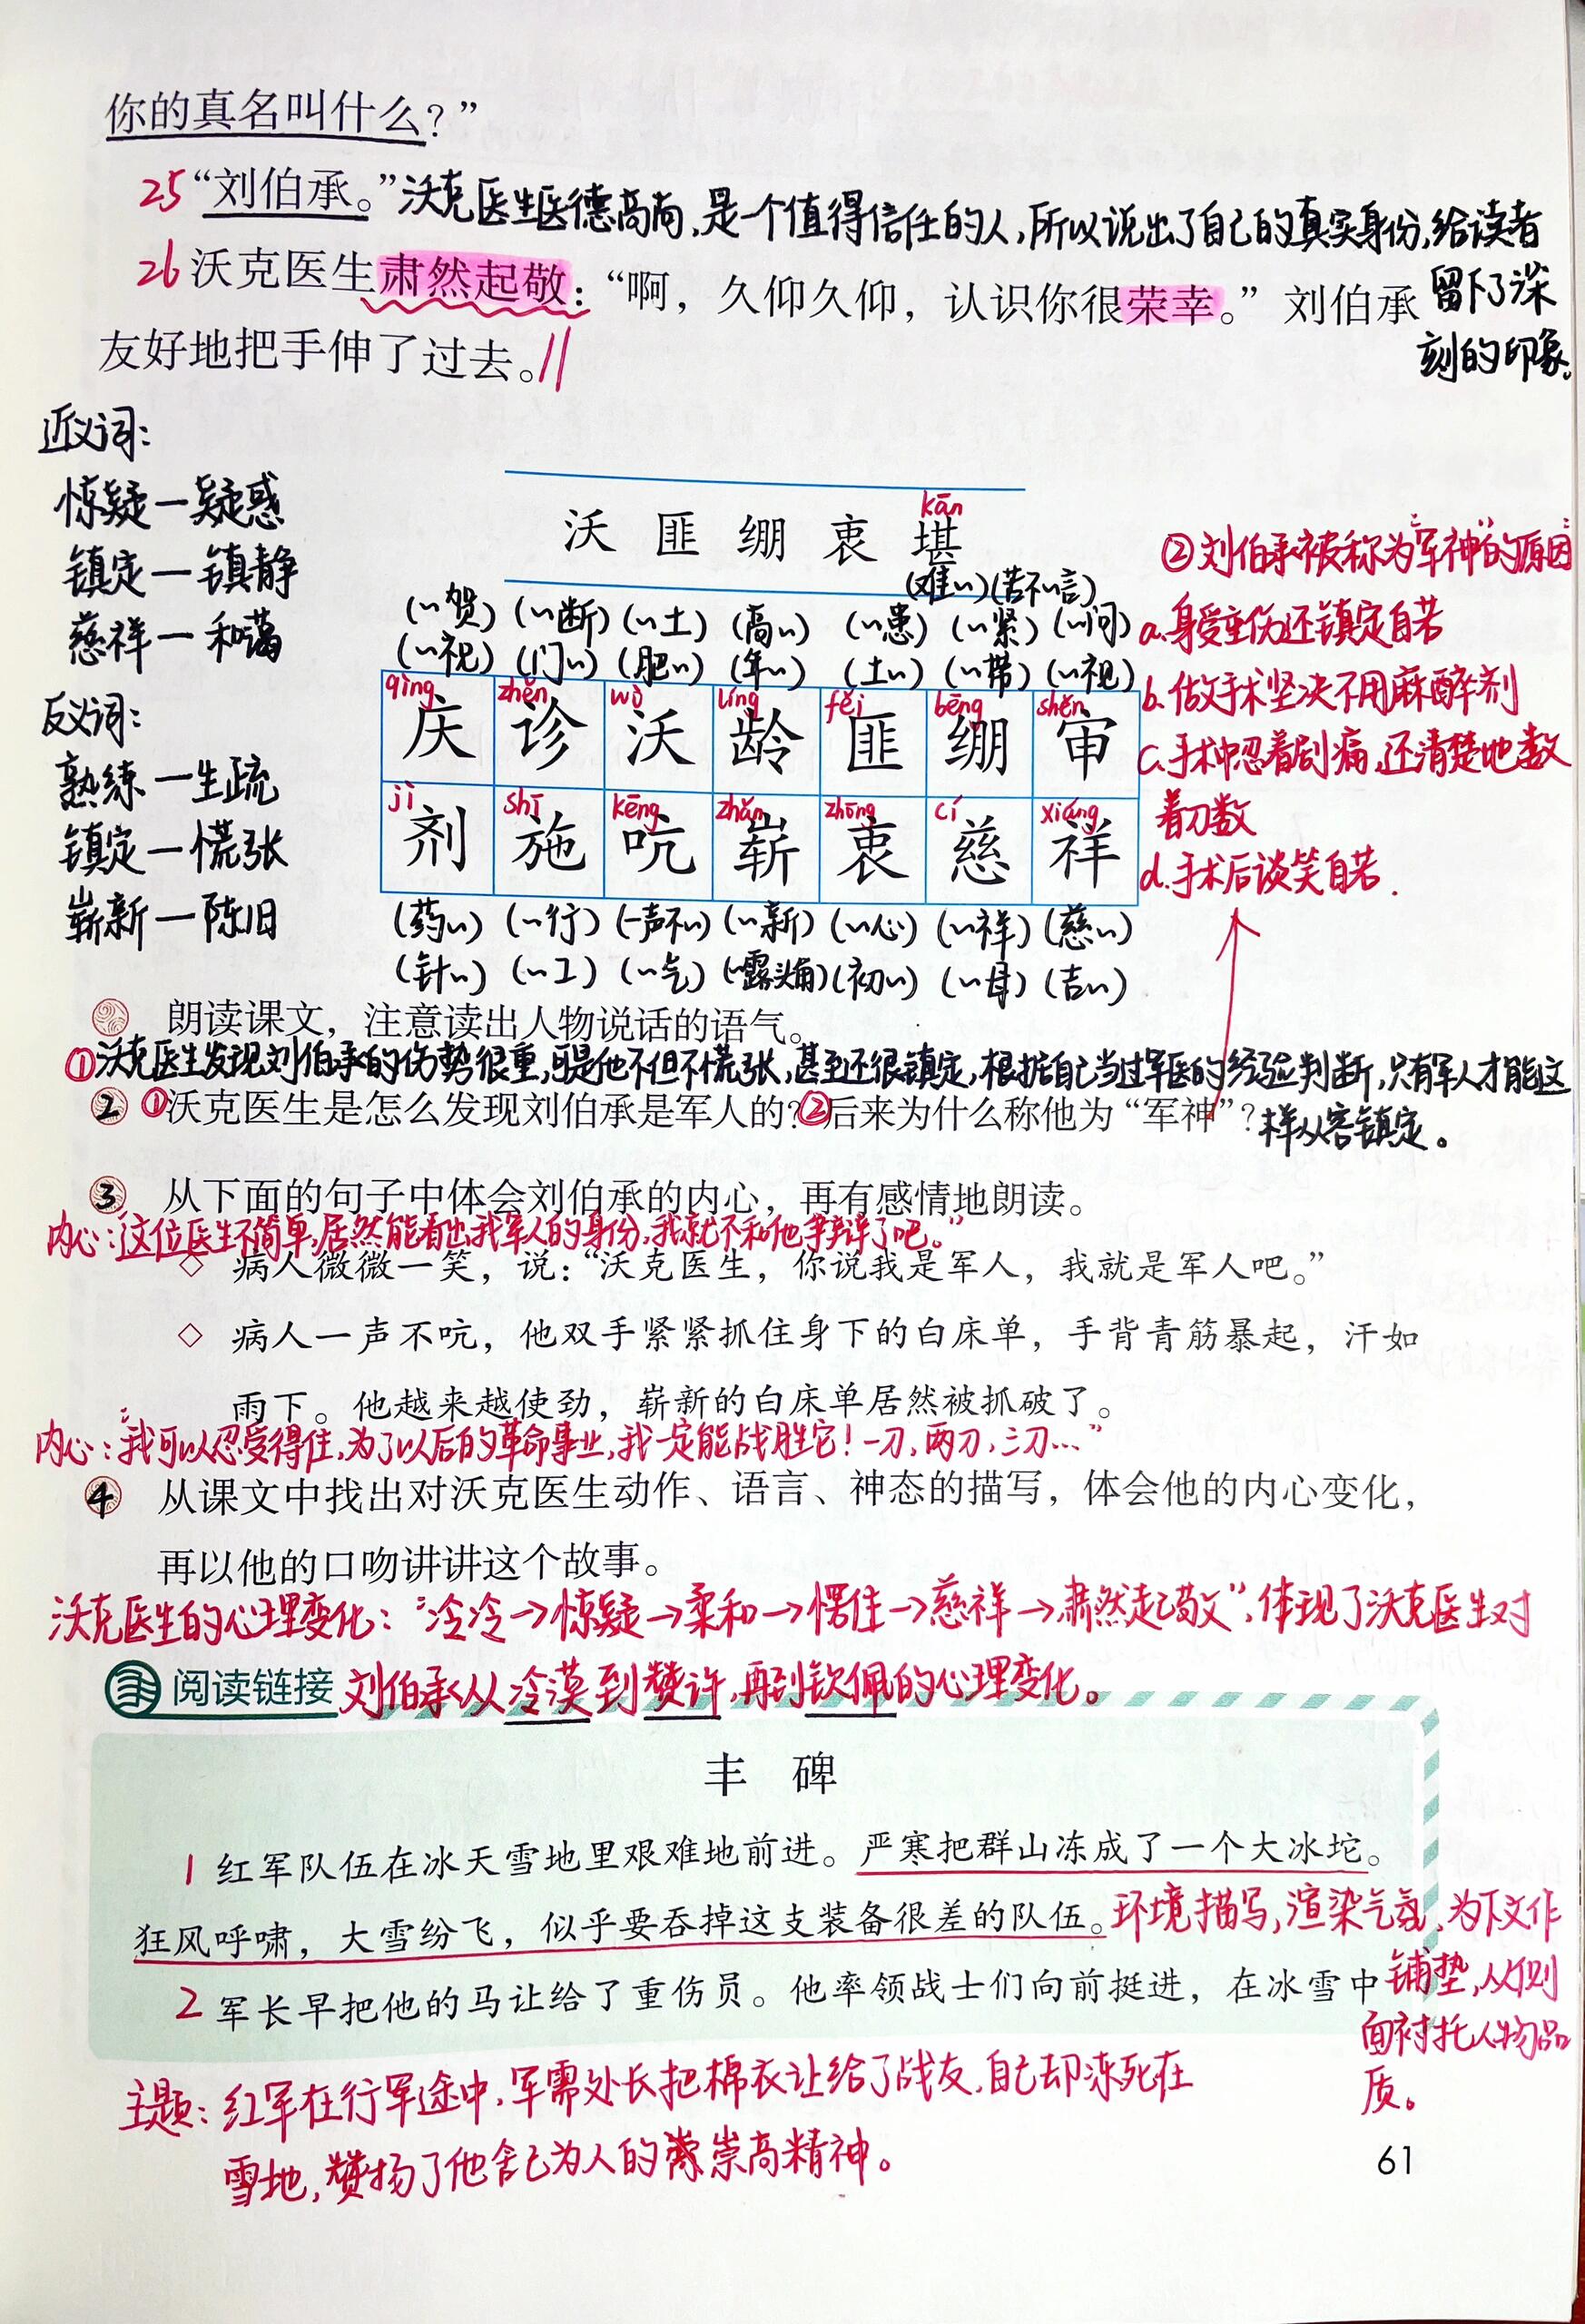 你的真名叫什么？”
25 “刘伯承。”沃克医生医德高尚，是一个值得信任的人，所以说出了自己的真实身份，给读者
留下了深
刻的印象。
26 沃克医生肃然起敬：“啊，久仰久仰，认识你很荣幸。” 刘伯承
友好地把手伸了过去。//
近义词：
惊疑—疑惑
镇定—镇静
慈祥—和蔼
反义词：
熟练—生疏
镇定—慌张
崭新—陈旧
kān
沃 匪 绷 衷 堪
(难~)(苦不~言)
(~贺) (~断) (~土) (高~) (~患) (~紧) (~问)
(~祝) (门~) (肥~) (年~) (土~) (~带) (~视)
qìng zhěn wò líng fěi bēng shěn
庆 诊 沃 龄 匪 绷 审
jì shī kēng zhǎn zhōng cí xiáng
剂 施 吭 崭 衷 慈 祥
(药~) (~行) (一声不~) (~新) (~心) (~祥) (慈~)
(针~) (~工) (~气) (~露头角) (初~) (~母) (吉~)
②刘伯承被称为“军神”的原因：
a.身受重伤还镇定自若
b.做手术坚决不用麻醉剂
c.手术中忍着剧痛，还清楚地数
着刀数
d.手术后谈笑自若.
朗读课文，注意读出人物说话的语气。
①沃克医生发现刘伯承的伤势很重，可是他不但不慌张，甚至还很镇定，根据自己当过军医的经验判断，只有军人才能这
样从容镇定。
2 ①沃克医生是怎么发现刘伯承是军人的？②后来为什么称他为“军神”？
3 从下面的句子中体会刘伯承的内心，再有感情地朗读。
内心：“这位医生不简单，居然能看出我军人的身份，我就不和他争辩了吧。”
◇ 病人微微一笑，说：“沃克医生，你说我是军人，我就是军人吧。”
◇ 病人一声不吭，他双手紧紧抓住身下的白床单，手背青筋暴起，汗如
雨下。他越来越使劲，崭新的白床单居然被抓破了。
内心：“我可以忍受得住，为了以后的革命事业，我一定能战胜它！一刀，两刀，三刀…”
4 从课文中找出对沃克医生动作、语言、神态的描写，体会他的内心变化，
再以他的口吻讲讲这个故事。
沃克医生的心理变化：“冷冷→惊疑→柔和→愣住→慈祥→肃然起敬”，体现了沃克医生对
刘伯承从冷漠到赞许，再到钦佩的心理变化。
阅读链接
丰 碑
1 红军队伍在冰天雪地里艰难地前进。严寒把群山冻成了一个大冰坨。
狂风呼啸，大雪纷飞，似乎要吞掉这支装备很差的队伍。环境描写，渲染气氛，为下文作
铺垫，从侧
面衬托人物品
质。
2 军长早把他的马让给了重伤员。他率领战士们向前挺进，在冰雪中
主题：红军在行军途中，军需处长把棉衣让给了战友，自己却冻死在
雪地，赞扬了他舍己为人的崇高精神。
61